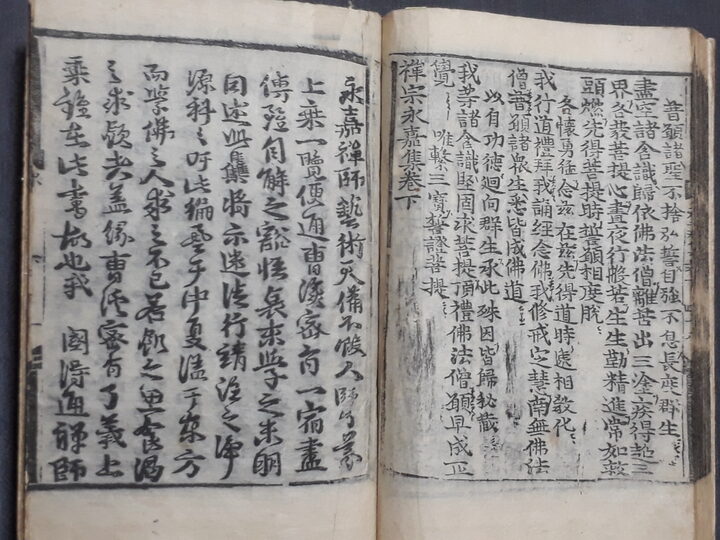 普願諸聖不捨弘誓自強不息長處群生
盡空諸含識歸依佛法僧離苦出三塗疾得超三
界各發菩提心晝夜行般若生生勤精進常如救
頭燃先得菩提時誓願相度脫
各懷勇猛念茲在茲先得道時處相教化
我行道禮拜我誦經念佛我修戒定慧南無佛法
僧普願諸衆生悉皆成佛道
以有功德迴向群生承此殊因皆歸秘藏
我等諸含識堅固求菩提頂禮佛法僧願早成正
覺 唯繫三寶誓證菩提
禪宗永嘉集卷下
永嘉禪師藝術大備不假人師
上乘一覽便通曹溪密旨一宿盡
傳證自解之悟哀來學之未明
因述此集將示迷法行靖注之淨
源科之吁此編于中夏于東方
而學佛之人求之不已若飢之思食渴
之求飮者蓋緣曹溪密旨了義上
乘在此書故也我 國得通禪師